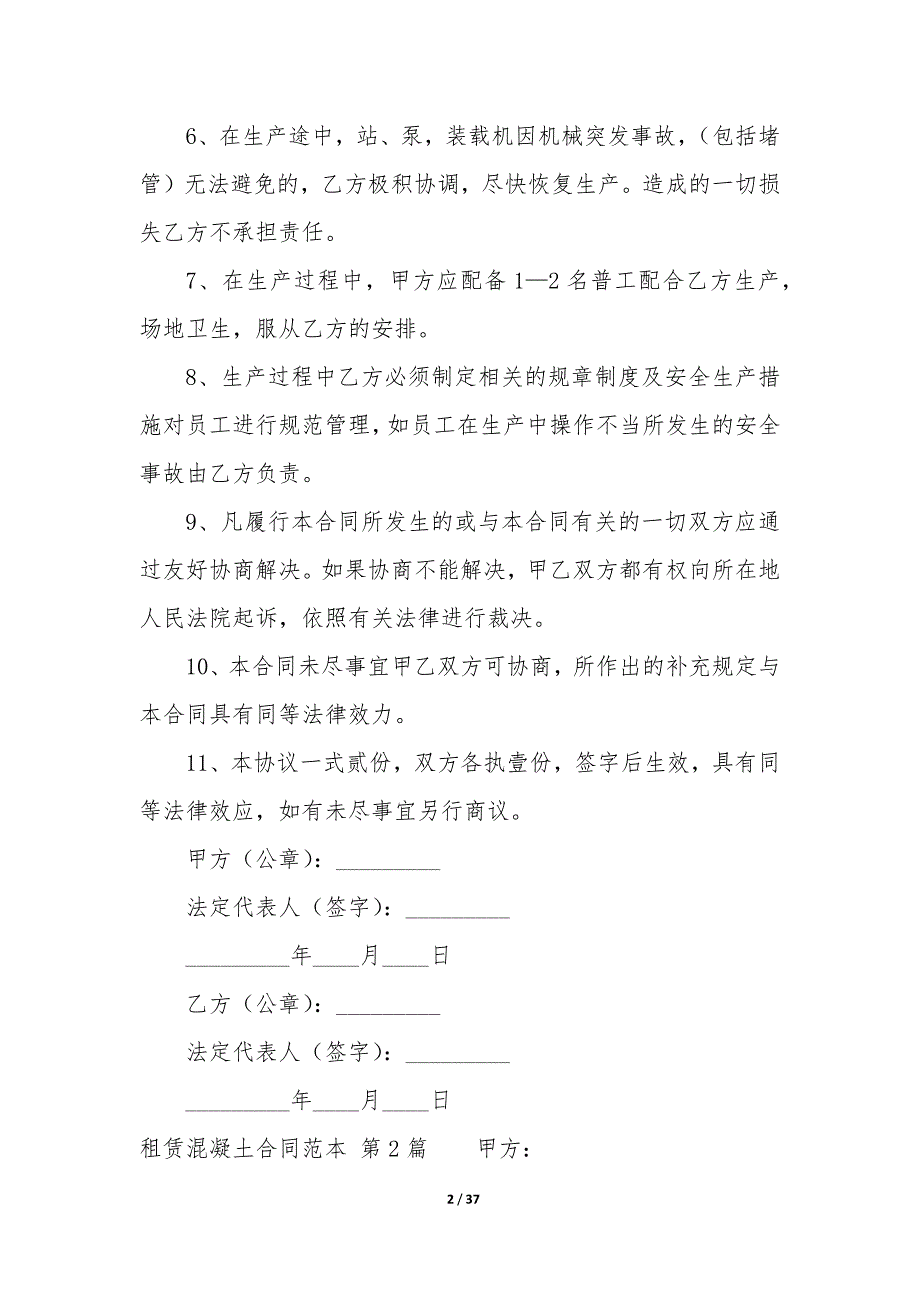 6、在生产途中，站、泵，装载机因机械突发事故，（包括堵
管）无法避免的，乙方极积协调，尽快恢复生产。造成的一切损
失乙方不承担责任。
7、在生产过程中，甲方应配备 1—2 名普工配合乙方生产，
场地卫生，服从乙方的安排。
8、生产过程中乙方必须制定相关的规章制度及安全生产措
施对员工进行规范管理，如员工在生产中操作不当所发生的安全
事故由乙方负责。
9、凡履行本合同所发生的或与本合同有关的一切双方应通
过友好协商解决。如果协商不能解决，甲乙双方都有权向所在地
人民法院起诉，依照有关法律进行裁决。
10、本合同未尽事宜甲乙双方可协商，所作出的补充规定与
本合同具有同等法律效力。
11、本协议一式贰份，双方各执壹份，签字后生效，具有同
等法律效应，如有未尽事宜另行商议。
甲方（公章）：_________
法定代表人（签字）：_________
_________年____月____日
乙方（公章）：_________
法定代表人（签字）：_________
_________年____月____日
租赁混凝土合同范本 第2篇 甲方：
2 / 37